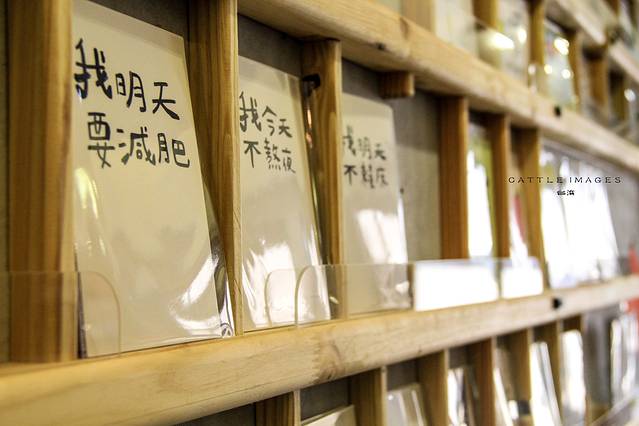 我明天
要減肥
我今天
不熬夜
我明天
不賴床
CATTLE IMAGES